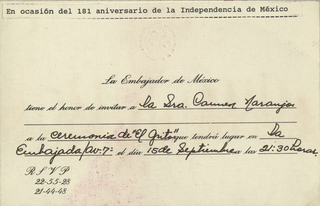 En ocasión del 181 aniversario de la Independencia de México
La Embajador de México
tiene el honor de invitar a la Sra. Carmen Naranjo
a la ceremonia de "El Grito" que tendrá lugar en La
Embajada/Av. 7ª. el día 15 de Septiembre a las 21:30 horas.
R S V P
22-55-28
21-44-48